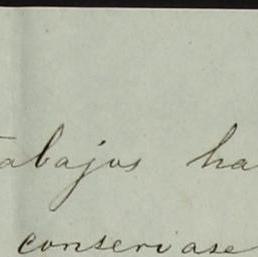 abajos ha
conservase